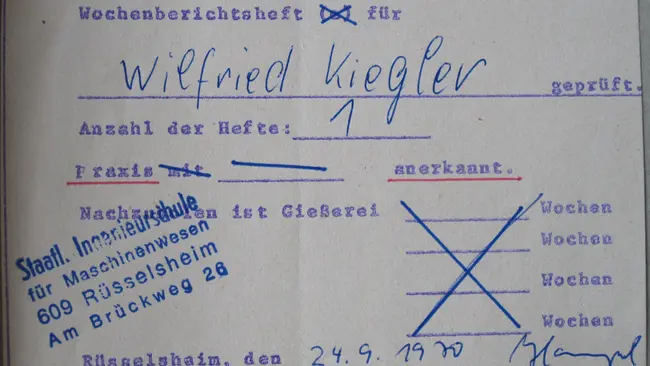 Wochenberichtsheft (e) für
Wilfried Kiegler geprüft.
Anzahl der Hefte: 1
Praxis mit anerkannt.
Nachzuholen ist Gießerei Wochen
Wochen
Wochen
Wochen
Staatl. Ingenieurschule
für Maschinenwesen
609 Rüsselsheim
Am Brückweg 26
Rüsselsheim, den 24.9.1970